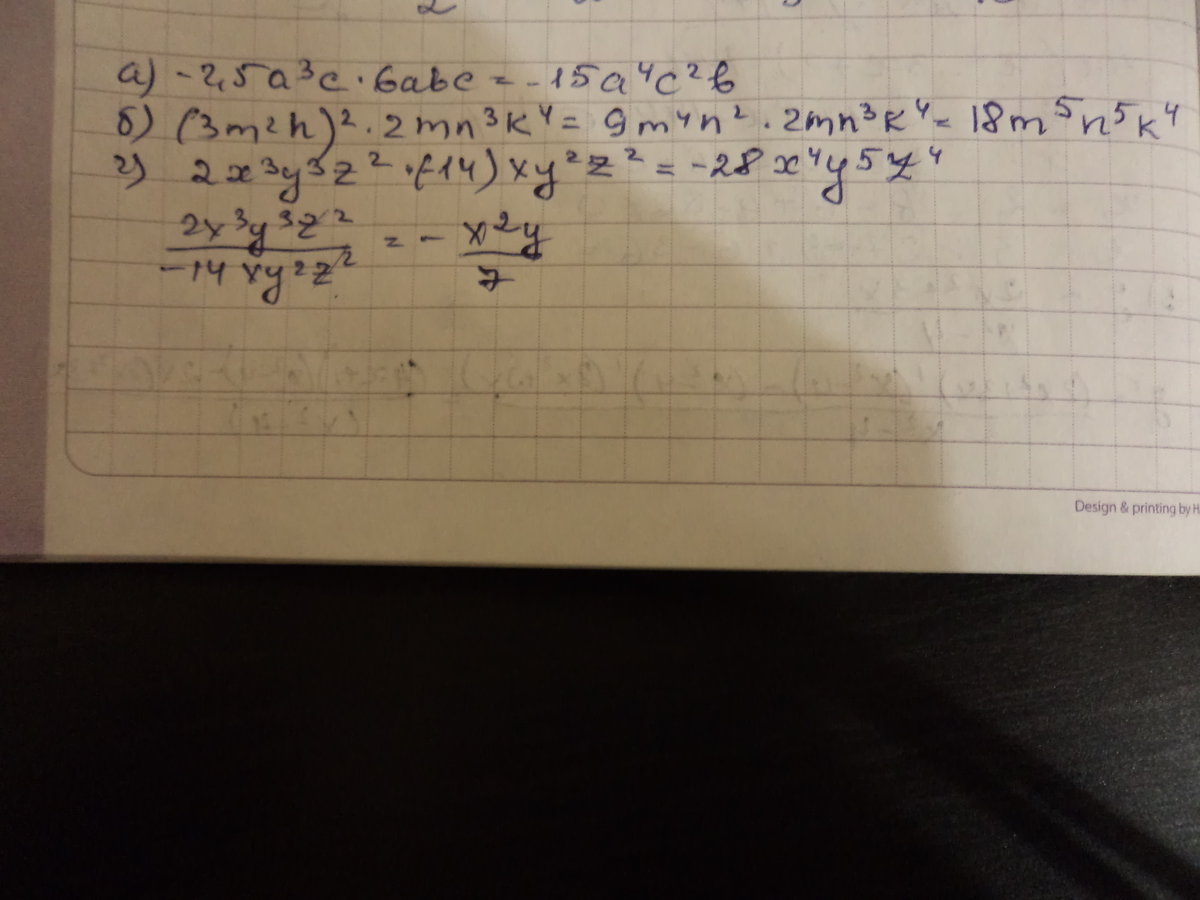 а) -2,5a³c · 6abc = -15a⁴c²b
б) (3m²n)² · 2mn³k⁴ = 9m⁴n² · 2mn³k⁴ = 18m⁵n⁵k⁴
г) 2x³y³z² · (-14)xy²z² = -28x⁴y⁵z⁴
2x³y³z² / -14xy²z² = - x²y / 7
Design & printing by H